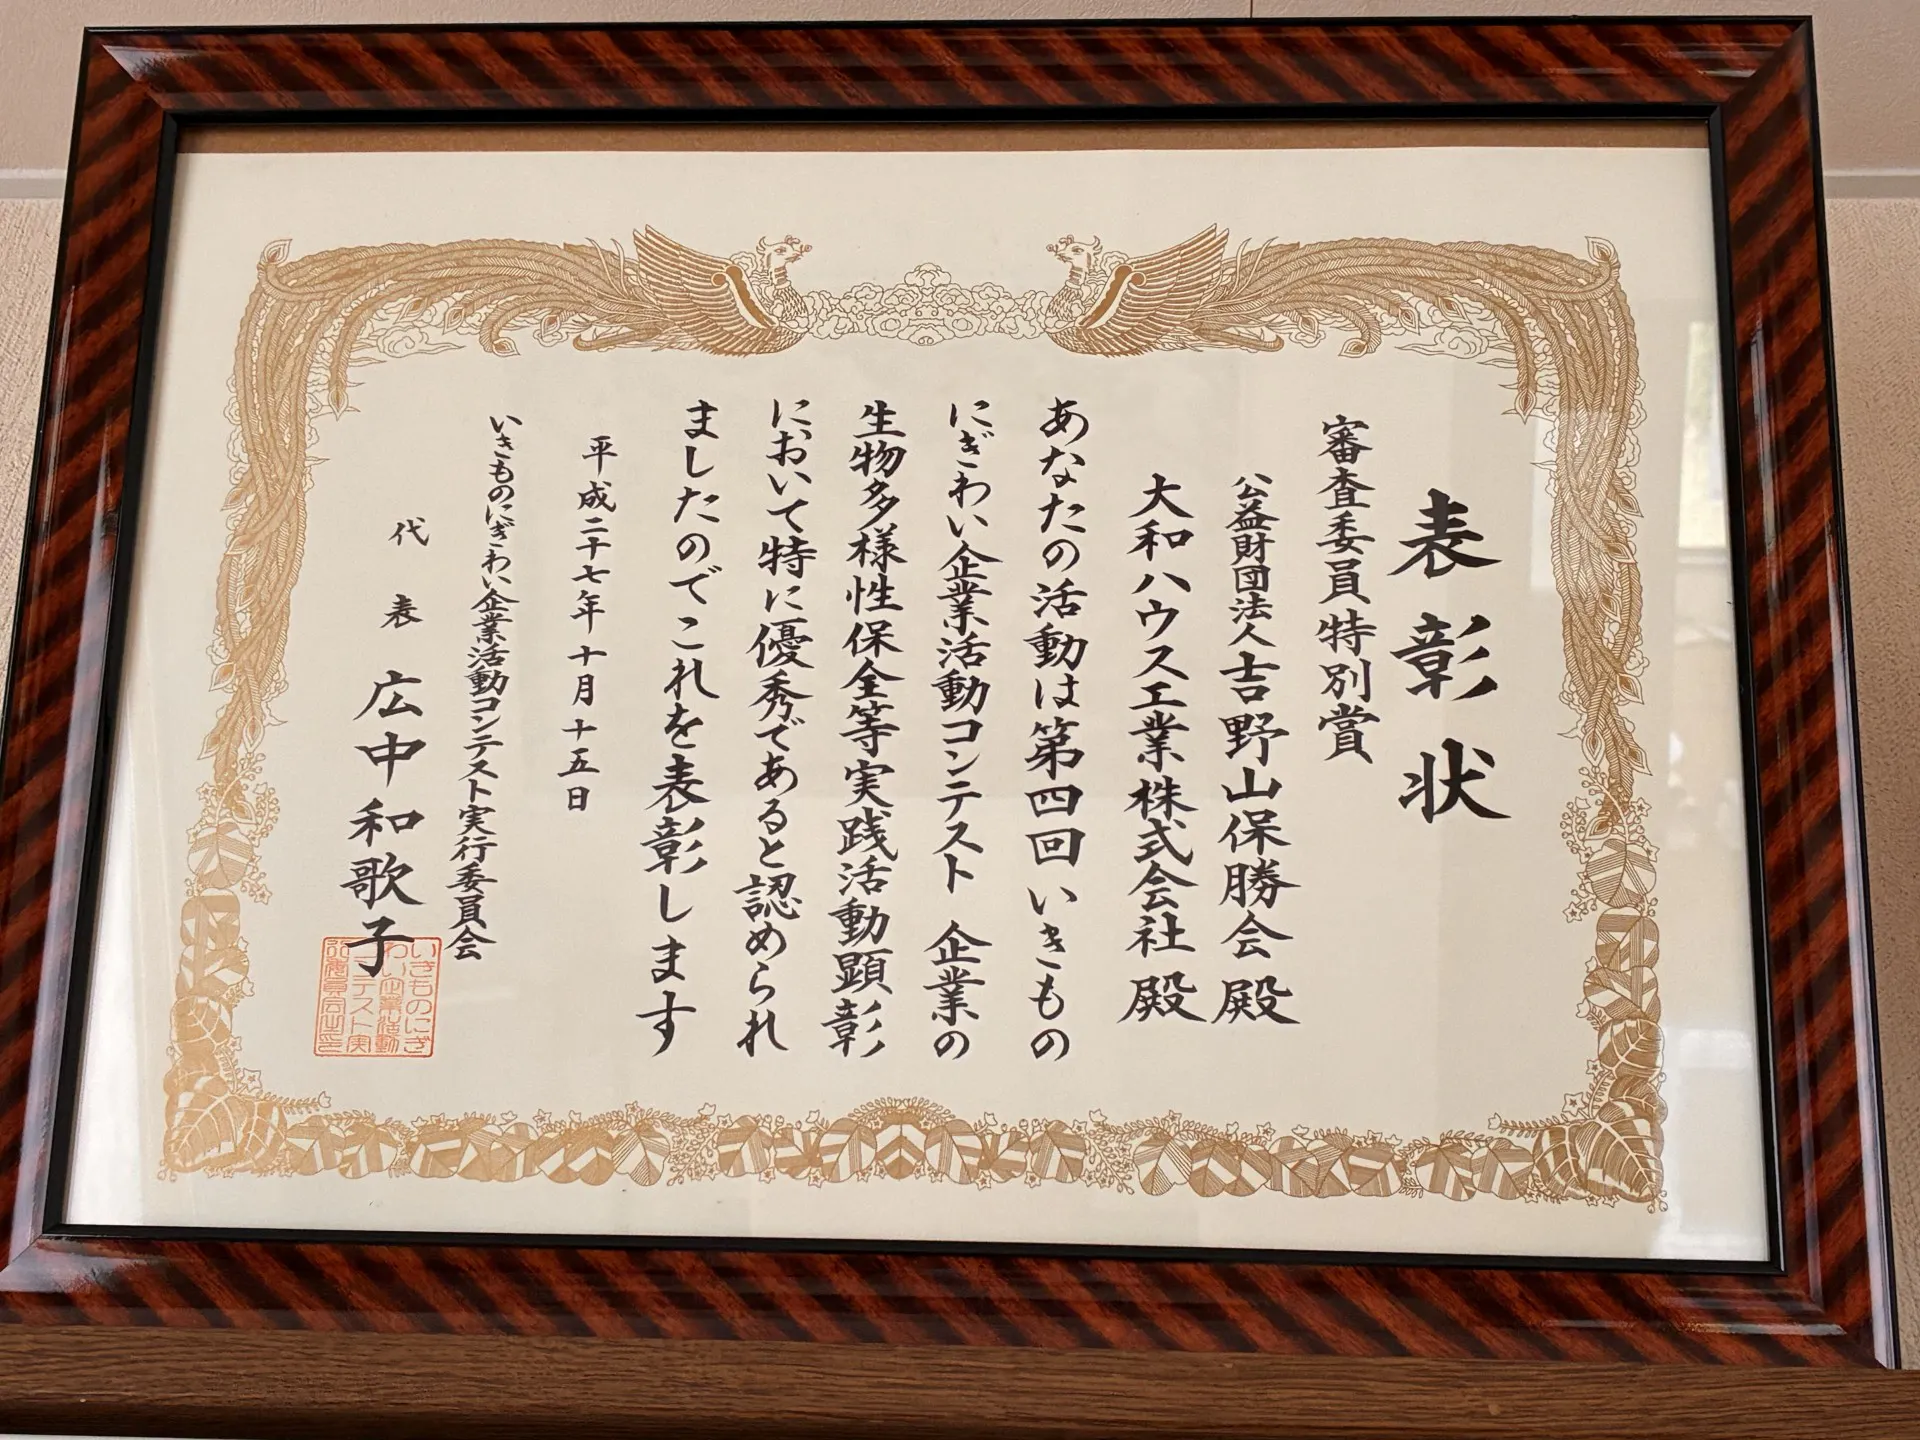 表彰状
審査委員特別賞
公益財団法人吉野山保勝会 殿
大和ハウス工業株式会社 殿
あなたの活動は第四回いきもの
にぎわい企業活動コンテスト 企業の
生物多様性保全等実践活動顕彰
において特に優秀であると認められ
ましたのでこれを表彰します
平成二十七年十月十五日
いきものにぎわい企業活動コンテスト実行委員会
代表 広中和歌子
いきものにぎ
わい企業活動
コンテスト実
行委員会之印